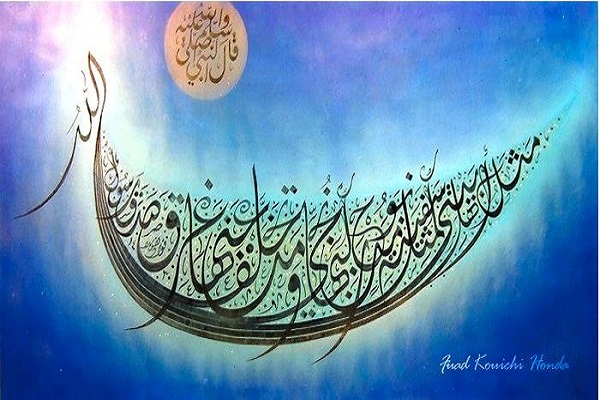 قال النبي صلى الله عليه وسلم
مثل أهل بيتي مثل سفينة نوح من ركبها نجا ومن تخلف عنها غرق صدق رسول الله
Fuad Kouichi Honda